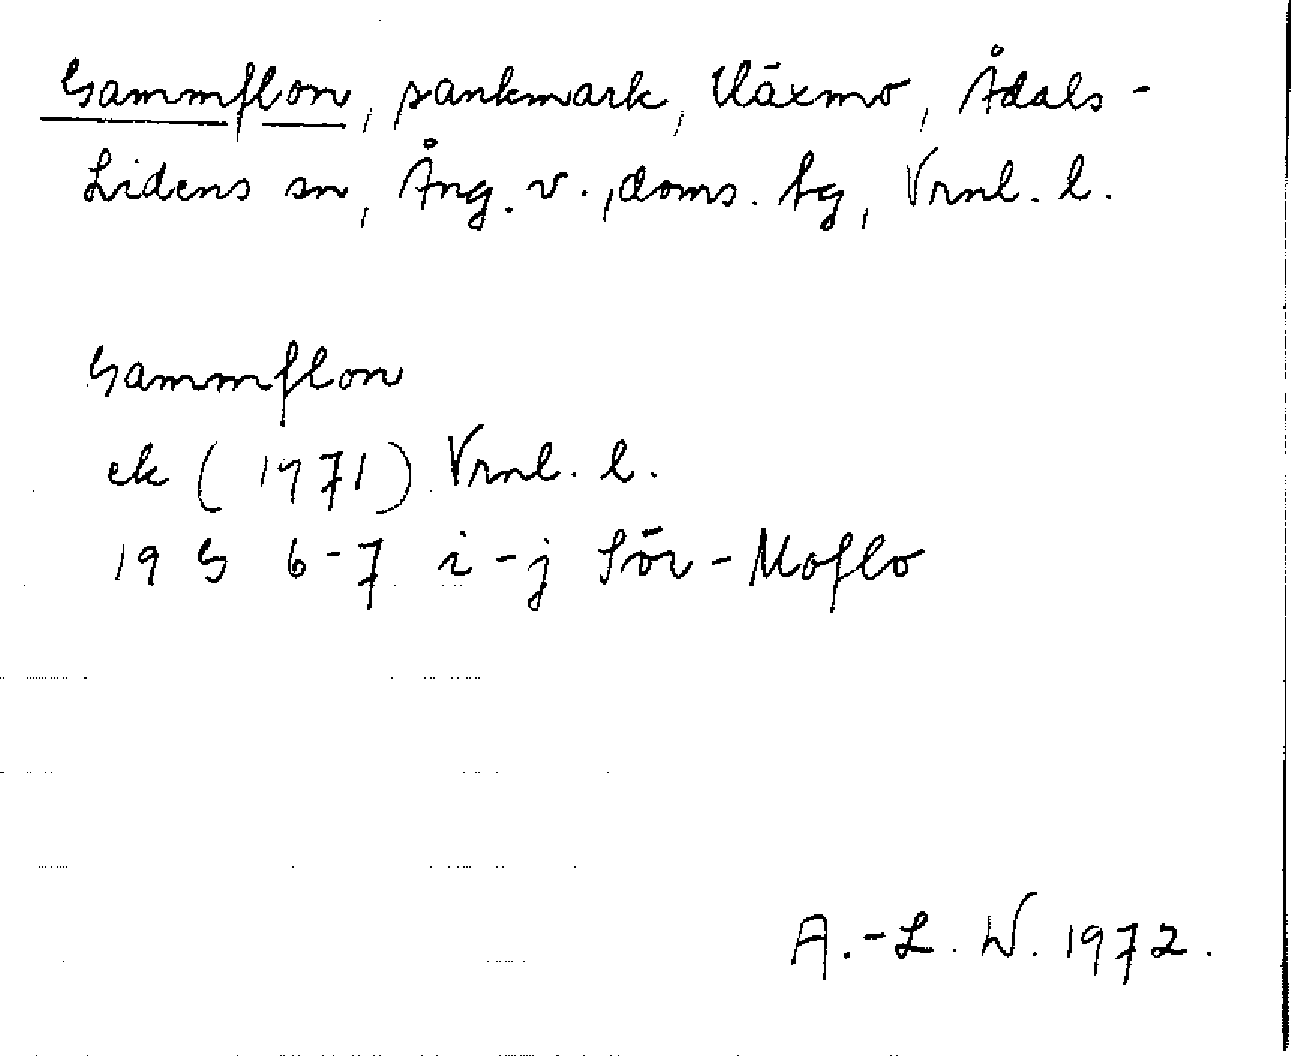 Gammflon, sankmark, Ådals-
Lidens sn, Ång. v., doms. tg, Vrnl. l.
Gammflon
ek (1971) Vrnl. l.
19 G 6-7 i-j Sör-Moflo
A.-L. W. 1972.